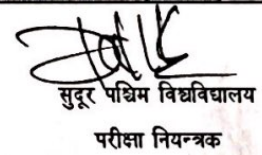 सुदूर पश्चिम विश्वविद्यालय
परीक्षा नियन्त्रक